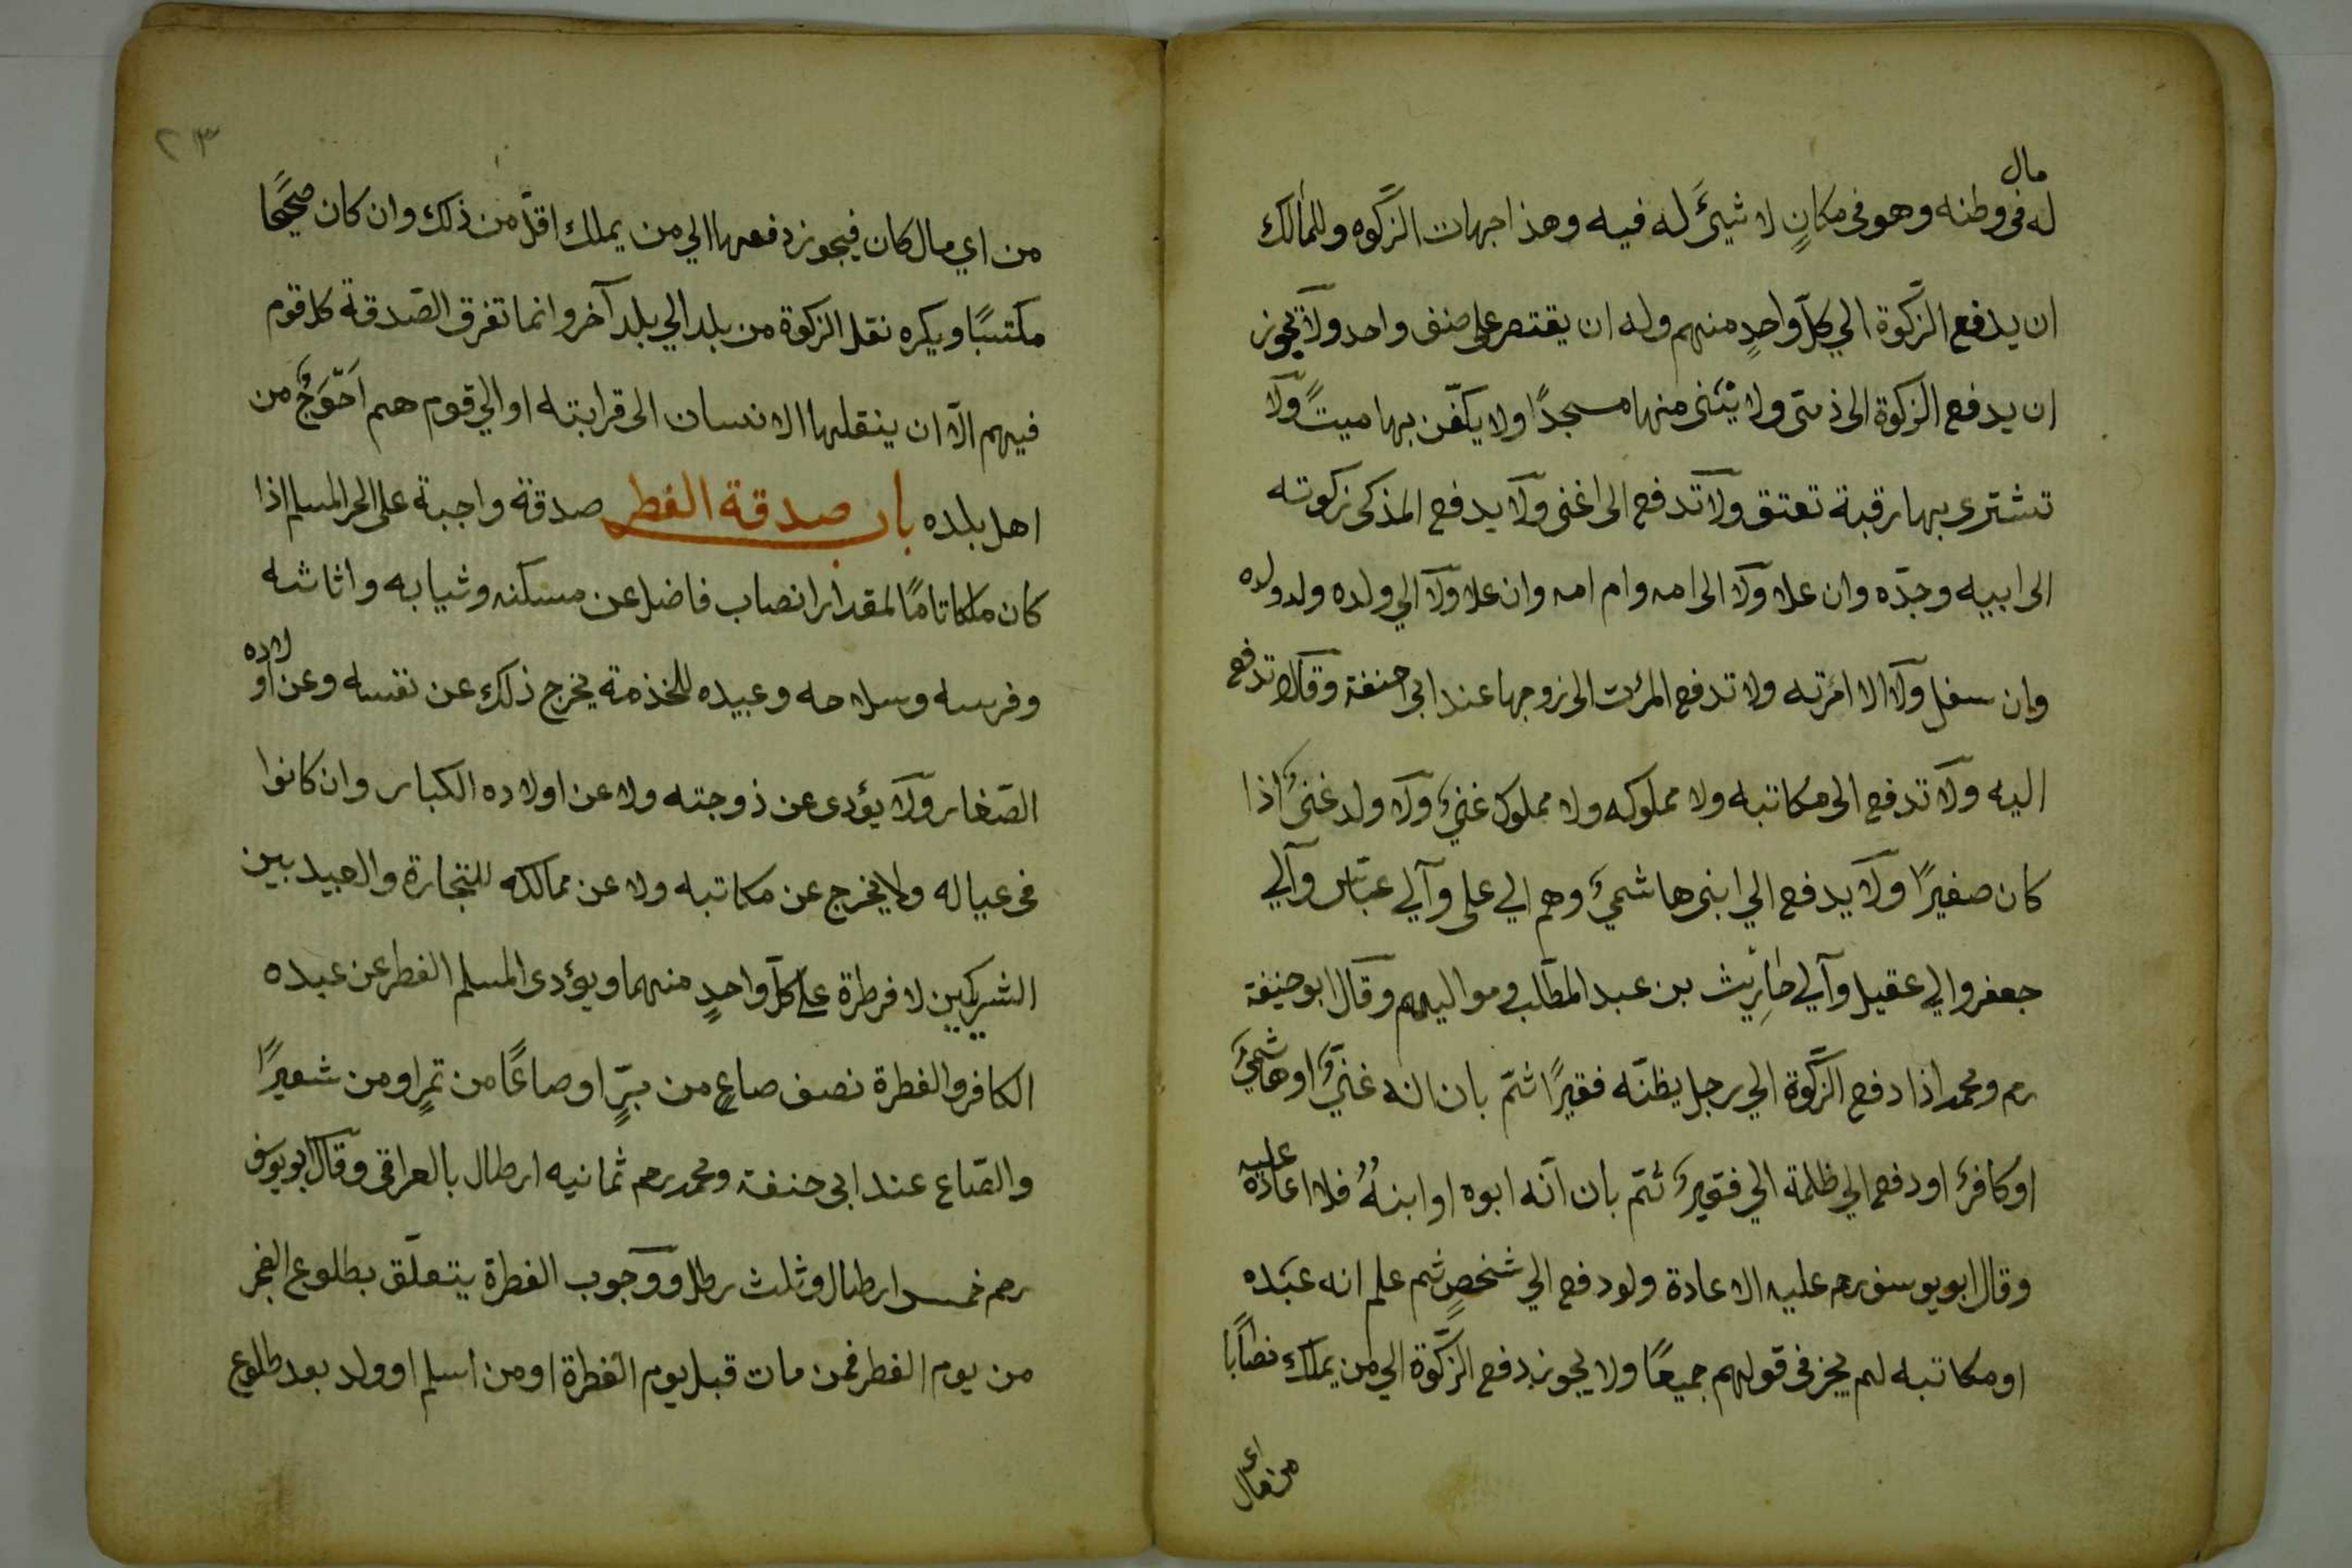 مال
له فى وطنه وهو فى مكانٍ لا شيئَ له فيه وهذا جهات الزَّكوه وللمالك
ان يدفع الزَّكوة الي كلّ واحدٍ منهم وله ان يقتصر على صنف واحد ولا يجوز
ان يدفع الزكوة الى ذمّى ولا يبْنى منها مسجدًا ولا يكفّن بها ميتً ولا
تشترى بها رقبة تعتق ولا تدفع الى اغنى ولا يدفع المذكى زكوته
الى ابيه وجدّه وان علا ولا الى امه وام امه وان علا ولا الي ولده وولد ولده
وان سفل ولا الا امرته ولا تدفع المرئت الى زوجها عند ابى حنفة وقالا تدفع
اليه ولا تدفع الى مكاتبه ولا مملوكه ولا مملوك غنيٍ ولا ولد غنىٍ اذا
كان صغيرًا ولا يدفع الي ابنى هاشميَ وهم الي على وآلي عبّاس وآلي
جعفر والي عقيل وآلي حاريث بن عبد المطّلب ومواليهم وقال ابو حنيفة
رم ومحمد اذا دفع الزَّكوة الي رجل يظنّه فقيرًا ثمّ بان انه غنيٌّ او هاشميَ
او كافرٌ او دفع الي ظلمة الي فقيرٍ ثمّ بان انّه ابوه او ابنهُ فلا اعادة عليه
وقال ابو يوسف رم عليه الاعادة ولو دفع الي شخصٍ ثم علم انه عبَده
او مكاتبه لم يجز فى قولهم جميعًا ولا يجوز دفع الزَّكّوة الي من يملك نصابًا
من اى مال
٢٣
من اي مال كان فيجوز دفعها الي من يملك اقلّ من ذلك وان كان صحيحًا
مكتسبًا ويكره نقل الزكوة من بلد الي بلد آخر وانما تفرق الصّدقة كل قوم
فيهم الّا ان ينقلها الانسان الى قرابته او الي قوم هم احَوَجُ من
اهل بلده باب صدقة الفطر صدقة واجبة على الحر المسلم اذا
كان ملكا تامًا لمقدار انصاب فاضل عن مسكنه وثيابه واثاثه
وفرسه وسلاحه وعبيده للخذمة يخرج ذلك عن نفسه وعن اولاده
الصّغار ولا يؤدى عن ذوجته ولا عن اولاده الكبار وان كانوا
فى عياله ولا يخرج عن مكاتبه ولا عن ممالكه للتجارة والعبيد بين
الشريكين لا فرطرة على كلّ واحدٍ منهما ويؤدى المسلم الفطر عن عبده
الكافر والفطرة نصف صاعٍ من برٍّ او صاعًا من تمرٍ او من شعيرًا
والصّاع عند ابى حنفة ومحمد رحم ثمانيه ارطال بالعراقى وقال ابو يوسف
رحم خمسه ارطال وثلث رطل ووجوب الفطرة يتعلّق بطلوع الفجر
من يوم الفطر فمن مات قبل يوم الفطرة او من اسلم او ولد بعد طلوع